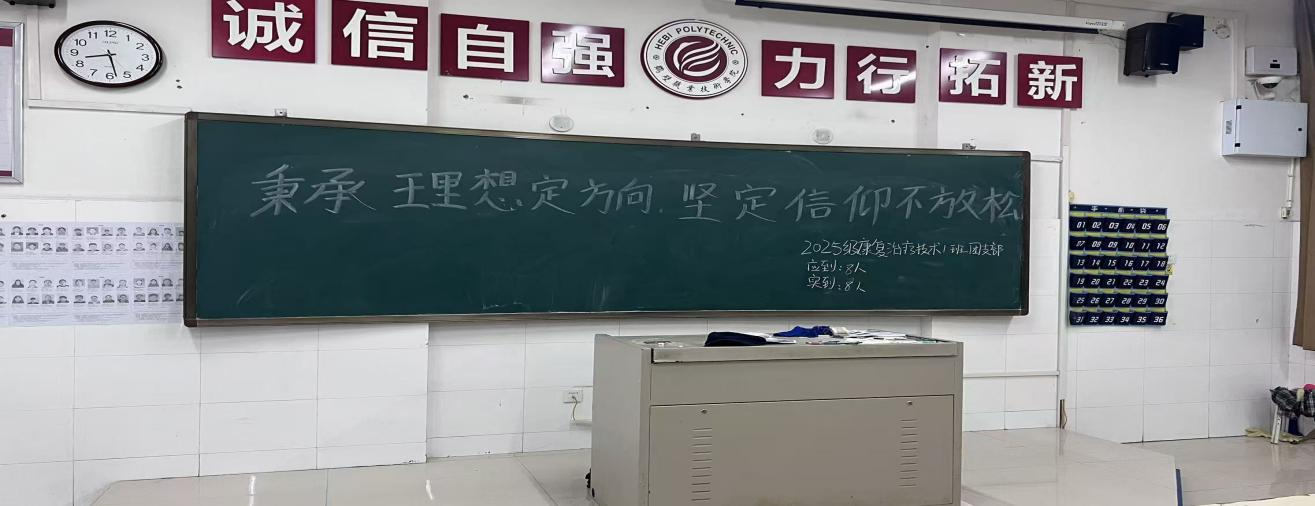 诚信自强
HEBI POLYTECHNIC
鹤壁职业技术学院
力行拓新
12 1 2 3 4 5 6 7 8 9 10 11
秉承理想定方向.坚定信仰不放松
2025级康复治疗技术1班团支部
应到:8人
实到:8人
手机袋
01 02 03 04 05 06
07 08 09 10 11 12
13 14 15 16 17 18
19 20 21 22 23 24
25 26 27 28 29 30
31 32 33 34 35 36